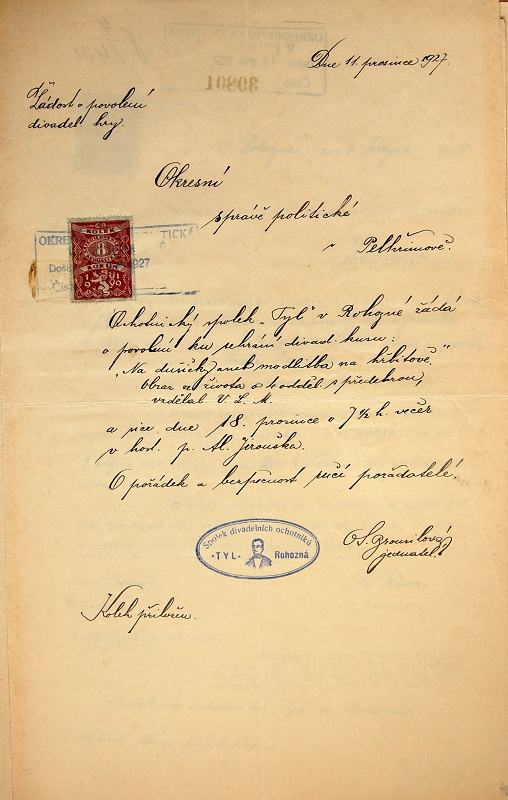 Dne 11. prosince 1927.
39801
Žádost o povolení
divadel. hry.
Okresní
správě politické
v Pelhřimově.
KOLEK
8
KORUN
1927
Ochotnický spolek „Tyl" v Rohozné žádá
o povolení ku sehrání divad. kusu:
„Na dušičky, aneb modlitba na hřbitově."
Obraz ze života o 4 odděl. s předehrou,
vzdělal V. L. M.
a sice dne 18. prosince o 7½ h. večer
v host. p. Al. Jirouška.
O pořádek a bezpečnost ručí pořadatelé.
Spolek divadelních ochotníků
-TYL- Rohozná
jednatel.
Kolek přiložen.